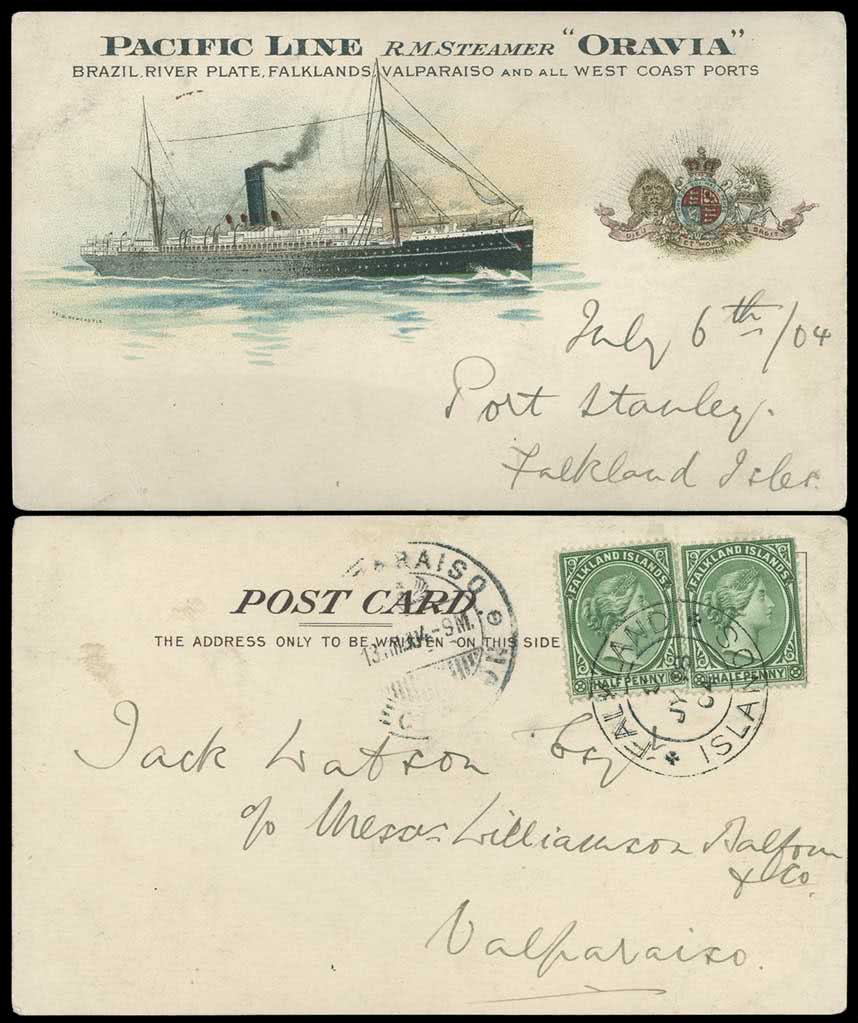 PACIFIC LINE R.M.STEAMER "ORAVIA"
BRAZIL, RIVER PLATE, FALKLANDS, VALPARAISO AND ALL WEST COAST PORTS
July 6th/04
Port Stanley.
Falkland Isles.
POST CARD.
THE ADDRESS ONLY TO BE WRITTEN ON THIS SIDE
FALKLAND ISLANDS FALKLAND ISLANDS
HALFPENNY HALFPENNY
FALKLAND ISLANDS
Jack Watson Esq
c/o Messrs Williamson Balfour
& Co.
Valparaiso.